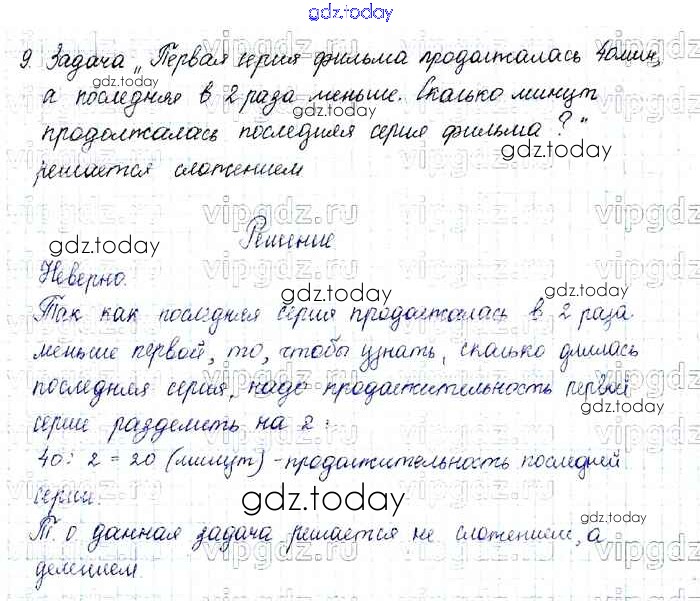 gdz.today
9. Задача „Первая серия фильма продолжалась 40 мин,
а последняя в 2 раза меньше. Сколько минут
продолжалась последняя серия фильма?"
решается сложением
Решение
Неверно.
Так как последняя серия продолжалась в 2 раза
меньше первой, то, чтобы узнать, сколько длилась
последняя серия, надо продолжительность первой
серии разделить на 2:
40 : 2 = 20 (минут) - продолжительность последней
серии.
Т. о данная задача решается не сложением, а
делением.
gdz.today
gdz.today
gdz.today
gdz.today
gdz.today
gdz.today
gdz.today
gdz.today
vipgdz.ru